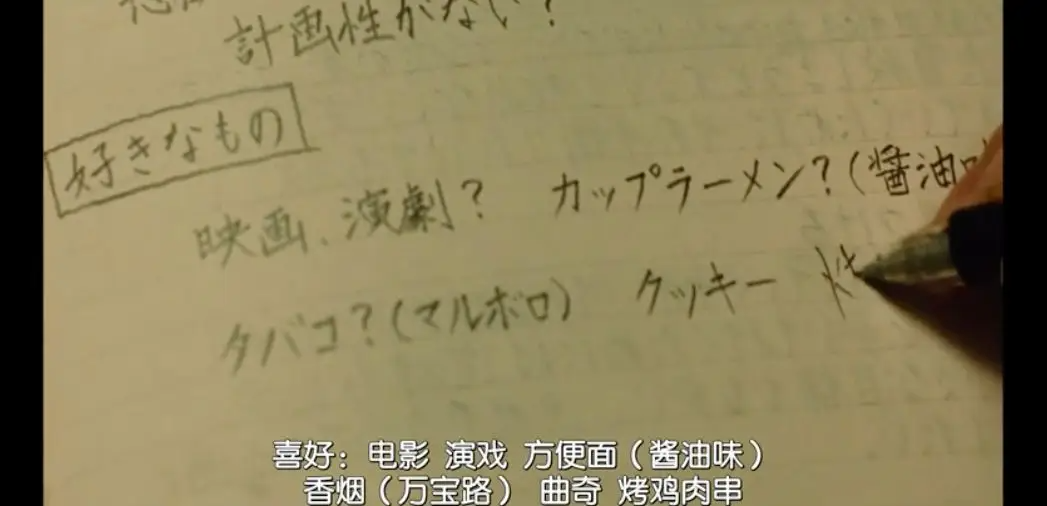 計画性がない?
好きなもの
映画、演劇? カップラーメン?(醤油味
タバコ?(マルボロ) クッキー 焼
喜好：电影 演戏 方便面（酱油味）
香烟（万宝路） 曲奇 烤鸡肉串